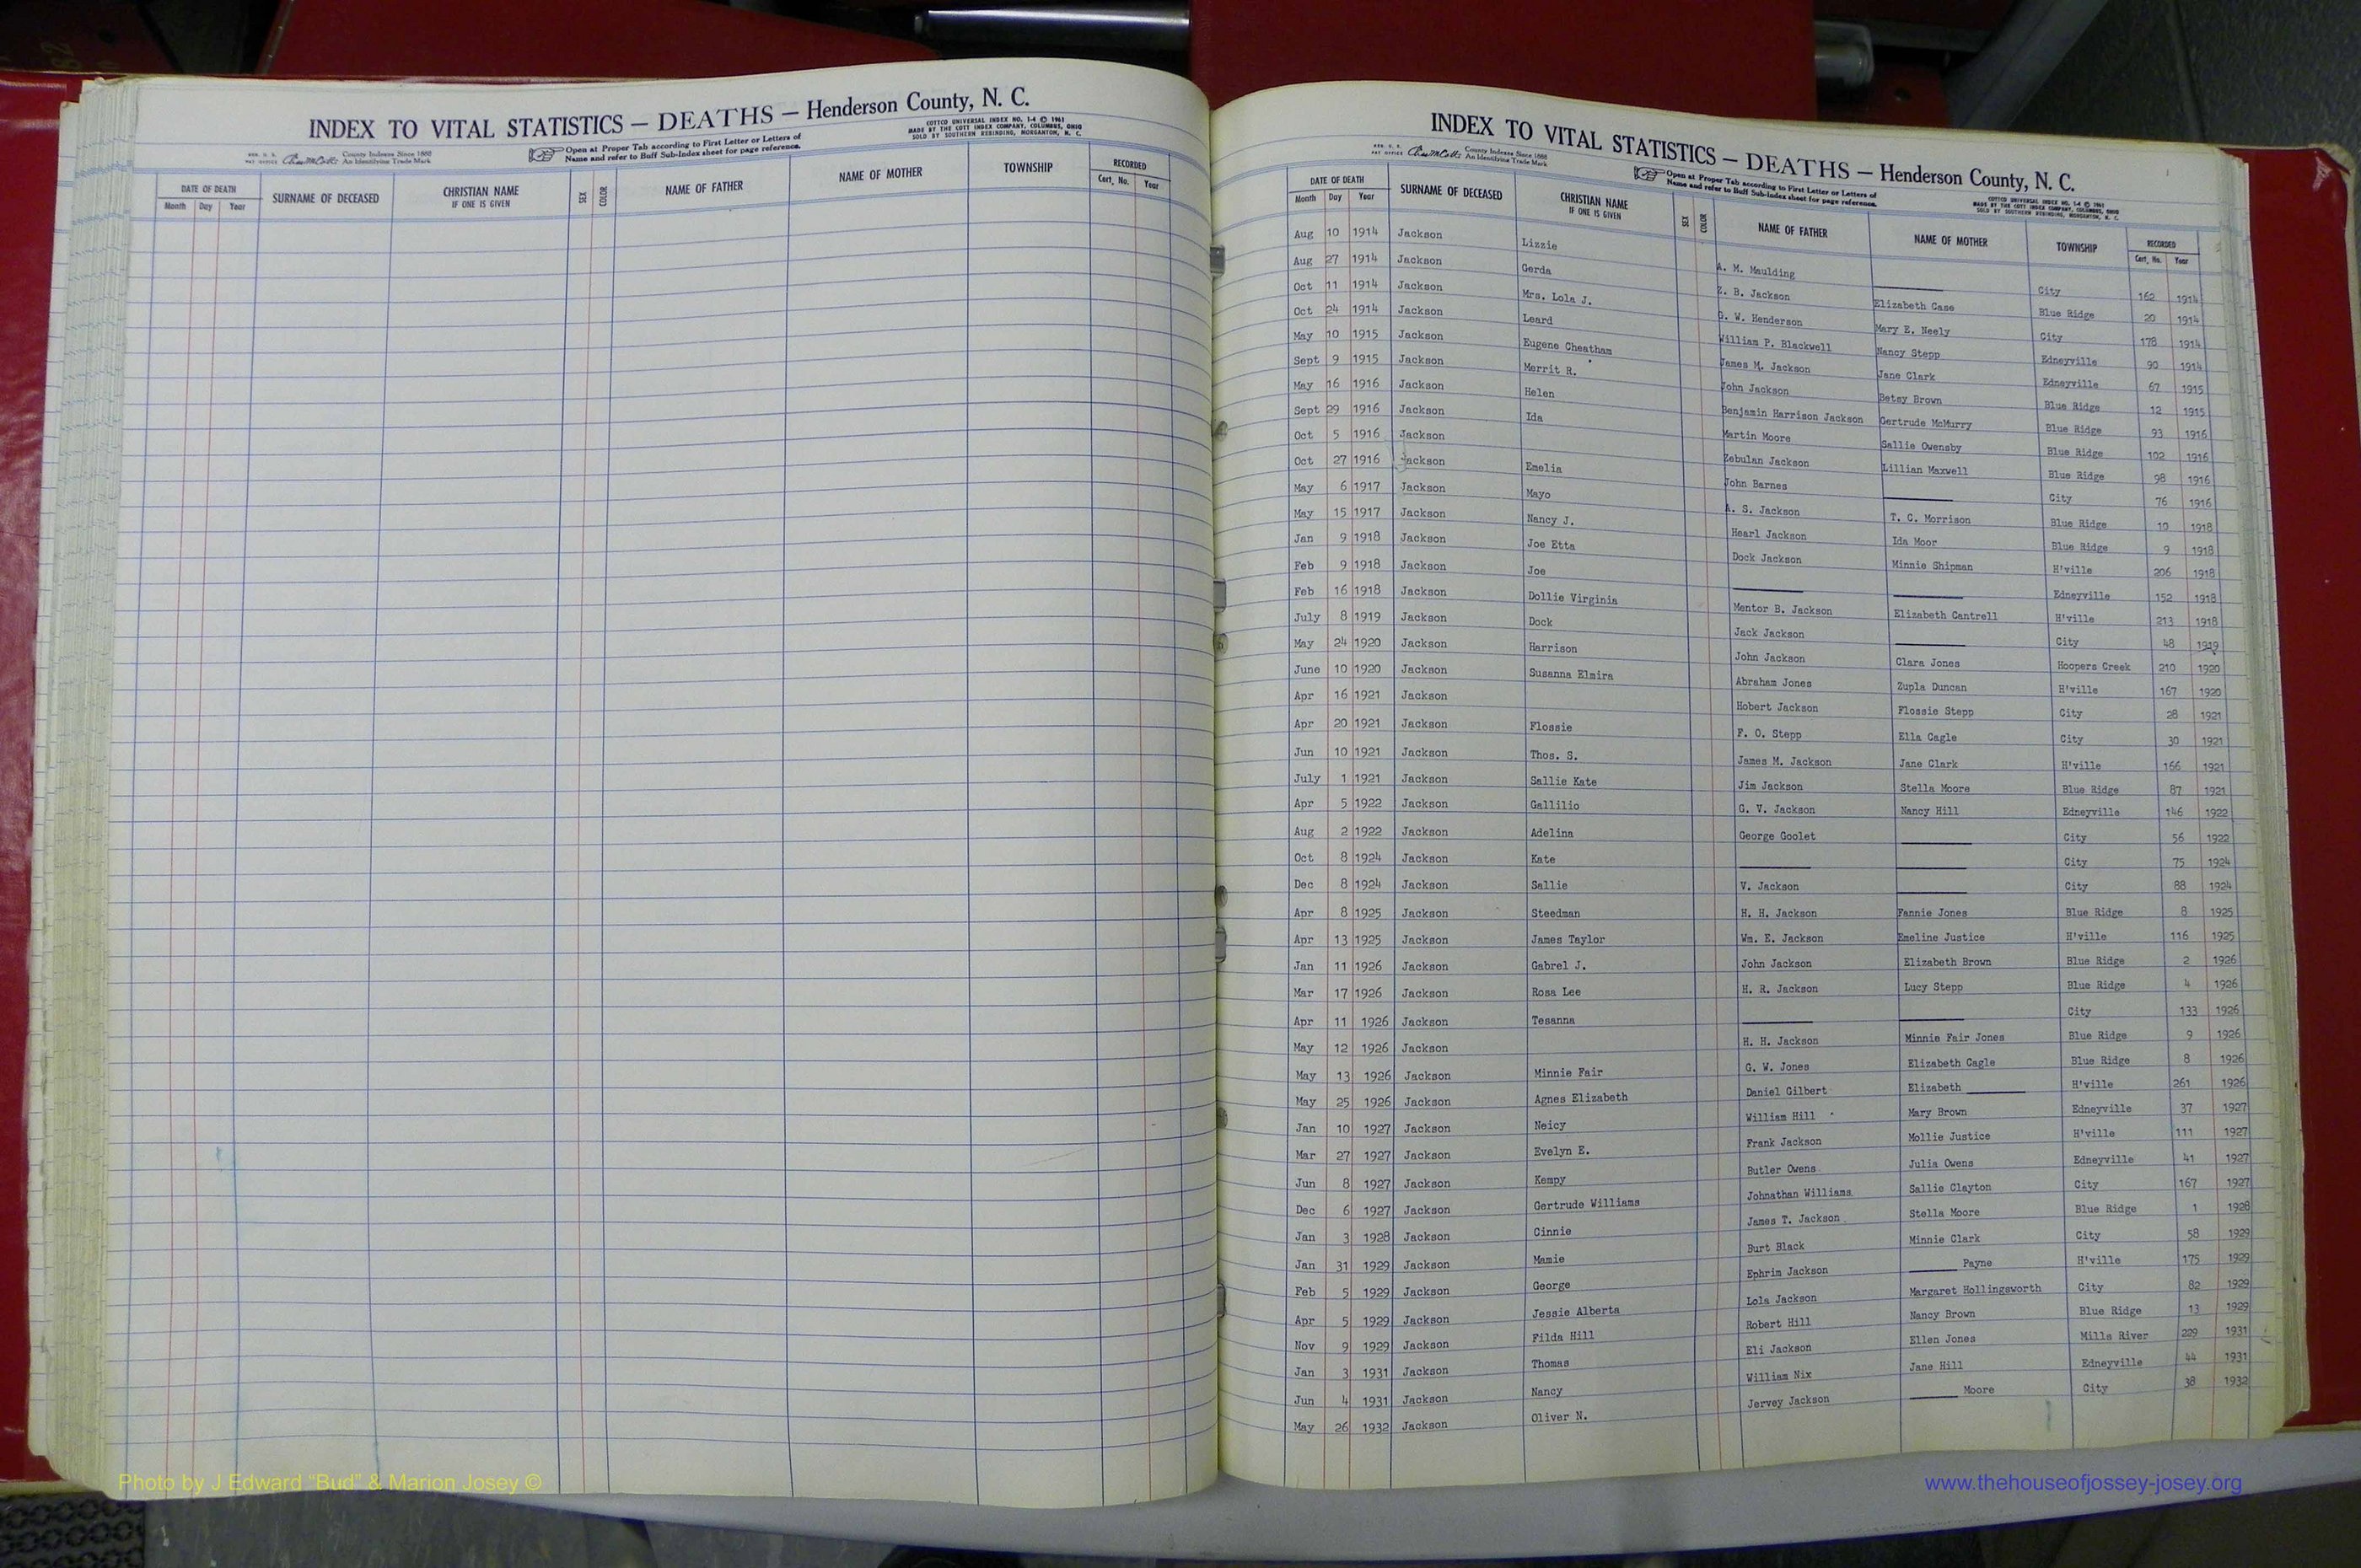 INDEX TO VITAL STATISTICS — DEATHS — Henderson County, N. C.
COTTCO UNIVERSAL INDEX NO. 1-4 © 1961
MADE BY THE COTT INDEX COMPANY, COLUMBUS, OHIO
SOLD BY SOUTHERN REBINDING, MORGANTON, N. C.
REG. U. S. PAT OFFICE County Indexes Since 1888 An Identifying Trade Mark
Open at Proper Tab according to First Letter or Letters of
Name and refer to Buff Sub-Index sheet for page reference.
DATE OF DEATH SURNAME OF DECEASED CHRISTIAN NAME IF ONE IS GIVEN SEX COLOR NAME OF FATHER NAME OF MOTHER TOWNSHIP RECORDED
Month Day Year Cert. No. Year
INDEX TO VITAL STATISTICS — DEATHS — Henderson County, N. C.
COTTCO UNIVERSAL INDEX NO. 1-4 © 1961
MADE BY THE COTT INDEX COMPANY, COLUMBUS, OHIO
SOLD BY SOUTHERN REBINDING, MORGANTON, N. C.
REG. U. S. PAT OFFICE County Indexes Since 1888 An Identifying Trade Mark
Open at Proper Tab according to First Letter or Letters of
Name and refer to Buff Sub-Index sheet for page reference.
DATE OF DEATH SURNAME OF DECEASED CHRISTIAN NAME IF ONE IS GIVEN SEX COLOR NAME OF FATHER NAME OF MOTHER TOWNSHIP RECORDED
Month Day Year Cert. No. Year
Aug 10 1914 Jackson Lizzie A. M. Maulding —— City 162 1914
Aug 27 1914 Jackson Gerda Z. B. Jackson Elizabeth Case Blue Ridge 20 1914
Oct 11 1914 Jackson Mrs. Lola J. G. W. Henderson Mary E. Neely City 178 1914
Oct 24 1914 Jackson Leard William P. Blackwell Nancy Stepp Edneyville 90 1914
May 10 1915 Jackson Eugene Cheatham James M. Jackson Jane Clark Edneyville 67 1915
Sept 9 1915 Jackson Merrit R. John Jackson Betsy Brown Blue Ridge 12 1915
May 16 1916 Jackson Helen Benjamin Harrison Jackson Gertrude McMurry Blue Ridge 93 1916
Sept 29 1916 Jackson Ida Martin Moore Sallie Owensby Blue Ridge 102 1916
Oct 5 1916 Jackson Zebulan Jackson Lillian Maxwell Blue Ridge 98 1916
Oct 27 1916 Jackson Emelia John Barnes —— City 76 1916
May 6 1917 Jackson Mayo A. S. Jackson T. C. Morrison Blue Ridge 10 1918
May 15 1917 Jackson Nancy J. Hearl Jackson Ida Moor Blue Ridge 9 1918
Jan 9 1918 Jackson Joe Etta Dock Jackson Minnie Shipman H'ville 206 1918
Feb 9 1918 Jackson Joe —— —— Edneyville 152 1918
Feb 16 1918 Jackson Dollie Virginia Mentor B. Jackson Elizabeth Cantrell H'ville 213 1918
July 8 1919 Jackson Dock Jack Jackson —— City 48 1919
May 24 1920 Jackson Harrison John Jackson Clara Jones Hoopers Creek 210 1920
June 10 1920 Jackson Susanna Elmira Abraham Jones Zupla Duncan H'ville 167 1920
Apr 16 1921 Jackson Hobert Jackson Flossie Stepp City 28 1921
Apr 20 1921 Jackson Flossie F. O. Stepp Ella Cagle City 30 1921
Jun 10 1921 Jackson Thos. S. James M. Jackson Jane Clark H'ville 166 1921
July 1 1921 Jackson Sallie Kate Jim Jackson Stella Moore Blue Ridge 87 1921
Apr 5 1922 Jackson Gallilio G. V. Jackson Nancy Hill Edneyville 146 1922
Aug 2 1922 Jackson Adelina George Goolet —— City 56 1922
Oct 8 1924 Jackson Kate —— —— City 75 1924
Dec 8 1924 Jackson Sallie V. Jackson —— City 88 1924
Apr 8 1925 Jackson Steedman H. H. Jackson Fannie Jones Blue Ridge 8 1925
Apr 13 1925 Jackson James Taylor Wm. E. Jackson Emeline Justice H'ville 116 1925
Jan 11 1926 Jackson Gabrel J. John Jackson Elizabeth Brown Blue Ridge 2 1926
Mar 17 1926 Jackson Rosa Lee H. R. Jackson Lucy Stepp Blue Ridge 4 1926
Apr 11 1926 Jackson Tesanna —— —— City 133 1926
May 12 1926 Jackson H. H. Jackson Minnie Fair Jones Blue Ridge 9 1926
May 13 1926 Jackson Minnie Fair G. W. Jones Elizabeth Cagle Blue Ridge 8 1926
May 25 1926 Jackson Agnes Elizabeth Daniel Gilbert Elizabeth —— H'ville 261 1926
Jan 10 1927 Jackson Neicy William Hill Mary Brown Edneyville 37 1927
Mar 27 1927 Jackson Evelyn E. Frank Jackson Mollie Justice H'ville 111 1927
Jun 8 1927 Jackson Kempy Butler Owens Julia Owens Edneyville 41 1927
Dec 6 1927 Jackson Gertrude Williams Johnathan Williams Sallie Clayton City 167 1927
Jan 3 1928 Jackson Cinnie James T. Jackson Stella Moore Blue Ridge 1 1928
Jan 31 1929 Jackson Mamie Burt Black Minnie Clark City 58 1929
Feb 5 1929 Jackson George Ephrim Jackson —— Payne H'ville 175 1929
Apr 5 1929 Jackson Jessie Alberta Lola Jackson Margaret Hollingsworth City 82 1929
Nov 9 1929 Jackson Filda Hill Robert Hill Nancy Brown Blue Ridge 13 1929
Jan 3 1931 Jackson Thomas Eli Jackson Ellen Jones Mills River 229 1931
Jun 4 1931 Jackson Nancy William Nix Jane Hill Edneyville 44 1931
May 26 1932 Jackson Oliver N. Jervey Jackson —— Moore City 38 1932
Photo by J Edward “Bud” & Marion Josey ©
www.thehouseofjossey-josey.org